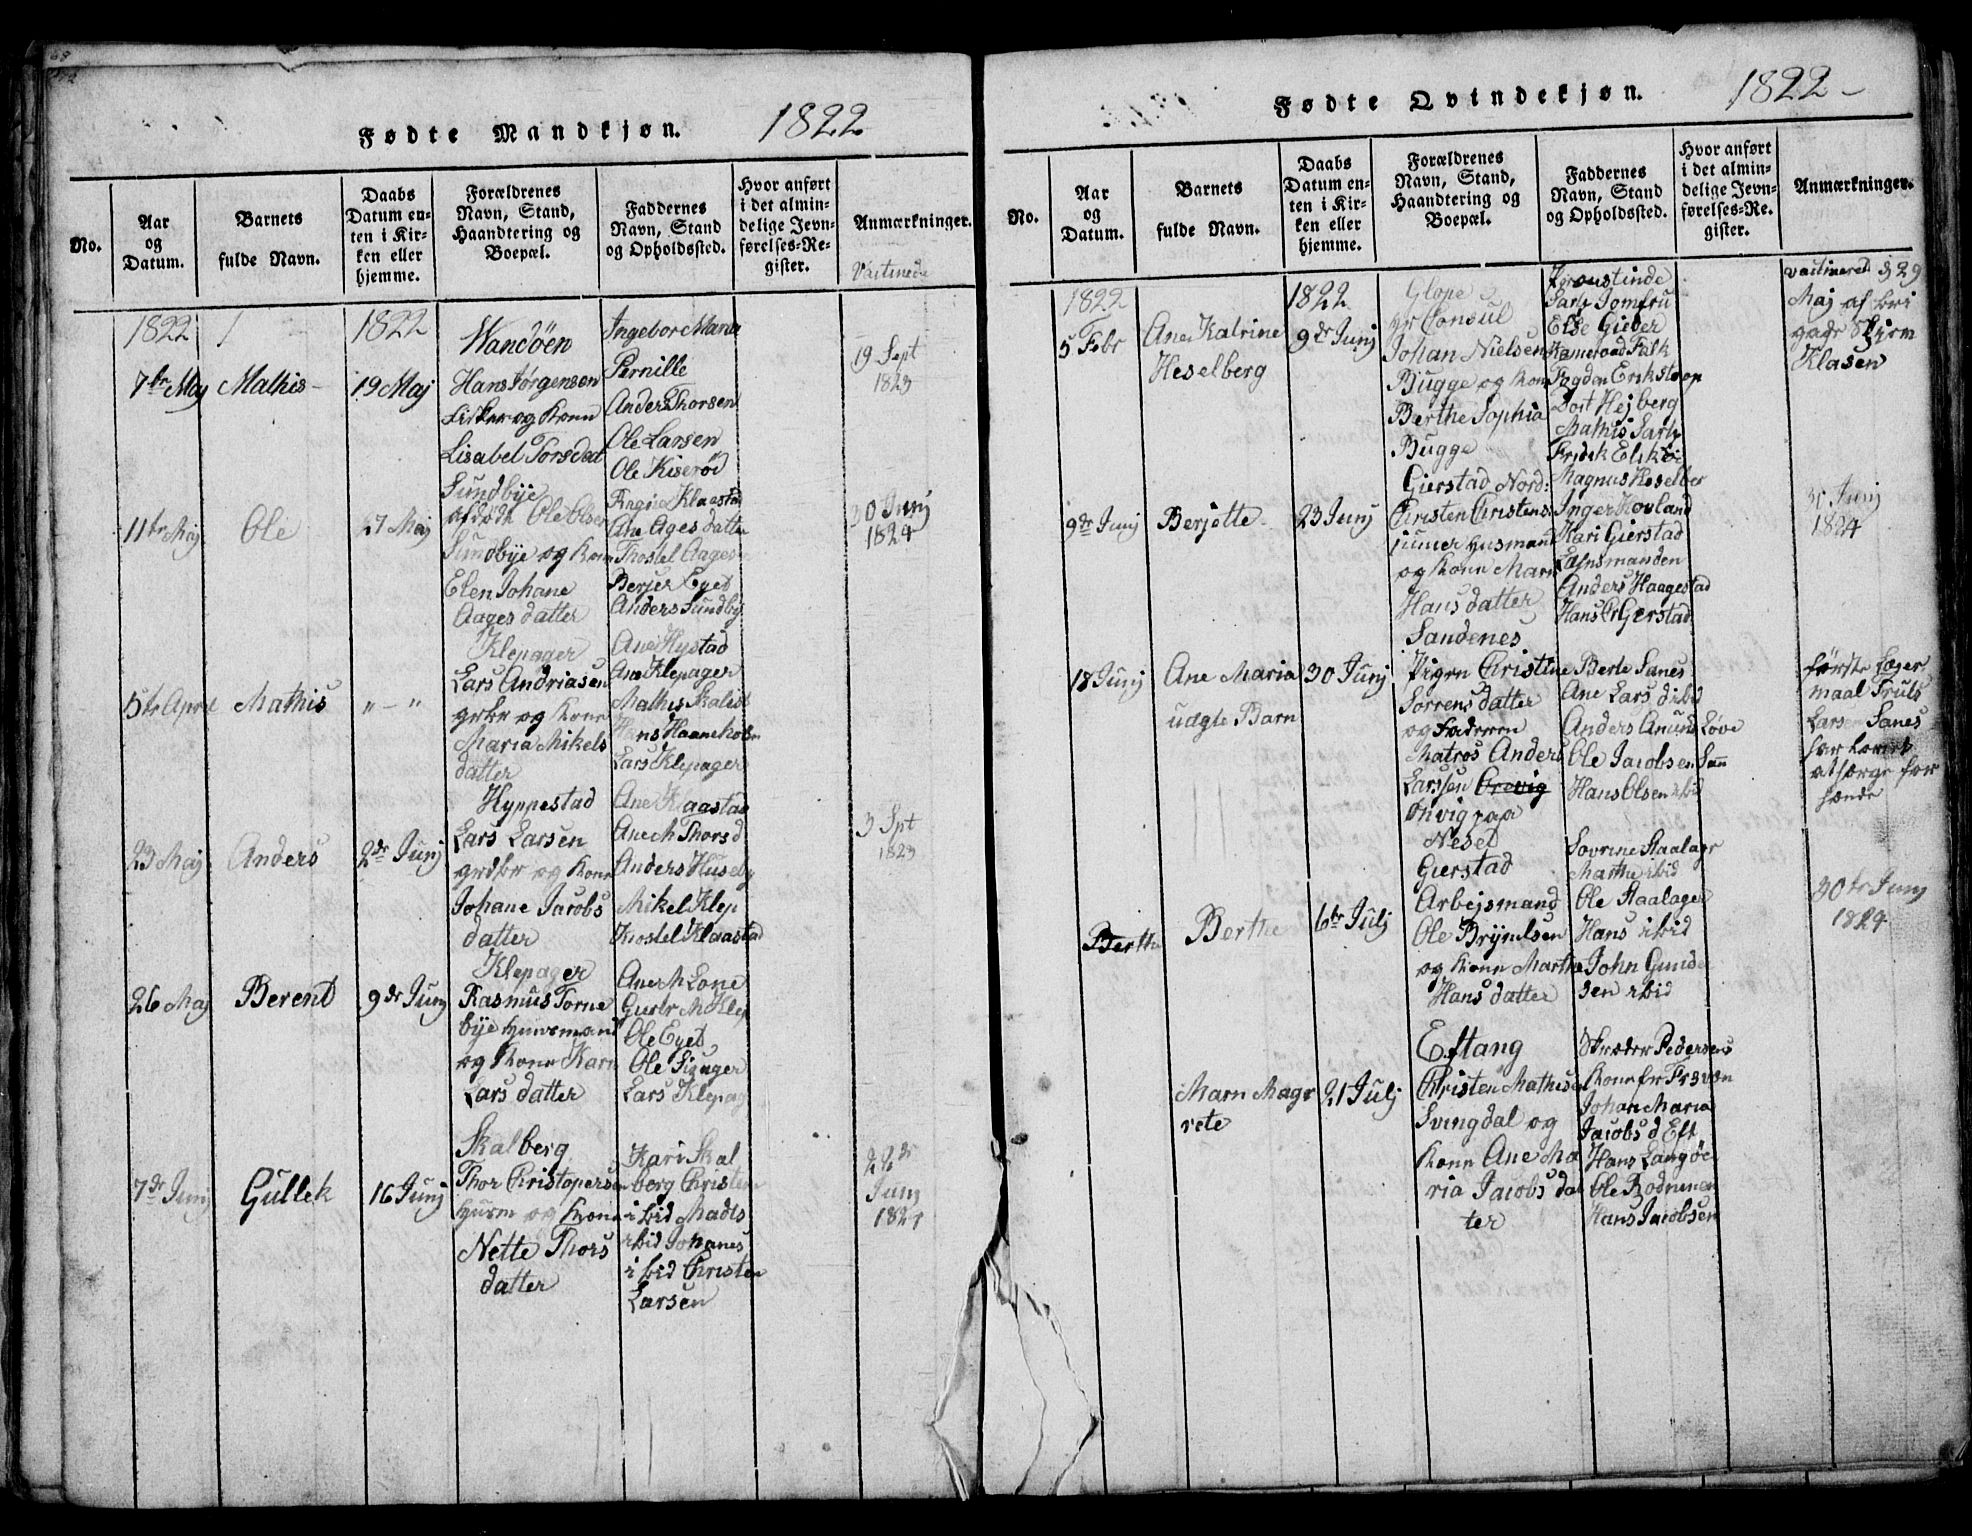 Fødte Mandkjøn. 1822
No.
Aar
og
Datum.
Barnets
fulde Navn.
Daabs
Datum en-
ten i Kir-
ken eller
hjemme.
Forældrenes
Navn, Stand,
Haandtering og
Boepæl.
Faddernes
Navn, Stand
og Opholdssted.
Hvor anført
i det almin-
delige Jevn-
førelses-Re-
gister.
Anmærkninger.
1822
7de Maj
Mathis
1822
19 Maj
Wandöen
Hans Jørgensen
Fisker og Kone
Lisabel Torsdat
Ingebor Maria
Pernille
Anders Thorsen
Ole Larsen
Ole Kiserød
19 Sept
1823
11te Maj
Ole
27 Maj
Sundbye
afdöde Ole Olsen
Sundbye og Kone
Elen Johane
Aages datter
Ragna Klaastad
Ane Ages datter
Thostel Aages
Berjer Eyed
Anders Sundby
30 Junj
1824
5te April
Mathis
" - "
Klepager
Lars Andriasen
grbr og Kone
Maria Mikels
datter
Ane Hystad
Ane Klepager
Mathis Skalist
Hans Haaneholm
Lars Klepager
23 Maj
Anders
2de Junj
Hyppestad
Lars Larsen
grdbr og Kone
Johane Jacobs
datter
Ane Klaastad
Ane M Thorsd
Anders Huseby
Mikel Klep
Thostel Klaastad
3 Spt
1823
26 Maj
Berent
9de Junj
Klepager
Rasmus Torne
bye Huusmand
og Kone Karn
Lars datter
Ane M Lone
Ole Eyed
Lars Klepag
7de Junj
Gullek
16 Junj
Skalberg
Thor Christopersen
husm og Kone
Nette Thors
datter
Kari Skal
berg Christen
ibid Madts
ibid Johanes
ibid Christen
Larsen
22de
Junj
1824
Fødte Qvindekjøn. 1822
No.
Aar
og
Datum.
Barnets
fulde Navn.
Daabs
Datum en-
ten i Kir-
ken eller
hjemme.
Forældrenes
Navn, Stand,
Haandtering og
Boepæl.
Faddernes
Navn, Stand
og Opholdssted.
Hvor anført
i det almin-
delige Jevn-
førelses-Re-
gister.
Anmærkninger.
1822
5 Febr
Ane Katrine
Heselberg
1822
9de Junj
hr Consul
Johan Nielsen
Bugge og Kone
Berthe Sophia
Bugge
Proustinde
Sartz Jomfru
Else Gieber
Kameraad Falk
Fogden Erikstrop
Hejberg
Mathis Sartz
Magnus Heselber
vactinered d 29
Maj af bri
gade Kirm
Klasen
9de Junj
Berjette
23 Junj
Gierstad Nord:
Christen Christens:
husmand
og Kone Marn
Hans datter
Inger Hovland
Kari Gierstad
Lænsmanden
Anders Haagestad
Hans Gjerstad
30 Junj
1824
18 Junj
Ane Maria
uægte Barn
30 Junj
Sandenes
Pigen Christine
Sorrens datter
og Faderen
Matros Anders
Larssen Orevig
Onvig paa
Neset
Berte Sanes
Ane Lars d ibid
Anders Amund Løve
Ole Jacobsen San
Hans Olsen ibid
første Lejer
maal Truls
Larsen Sanes
har lovet
at sørge for
Berthe
Berthe
6te Julj
Gierstad
Arbejsmand
Ole Bryndsen
og Kone Marthe
Hans datter
Sovrine Staalager
Marthe ibid
Ole Staalager
Hans ibid
John Gunde
sen ibid
30te Junj
1824
Marn Magr
rete
21 Julj
Eftang
Christen Mathisen
Svingdal og
Kone Ane Ma
ria Jacobs dat
ter
Skræder Pedersens
Kone fr Freven
Johan Maria
Jacobs d Eft
Hans Langöe
Ole Bodnemen
Hans Jacobsen